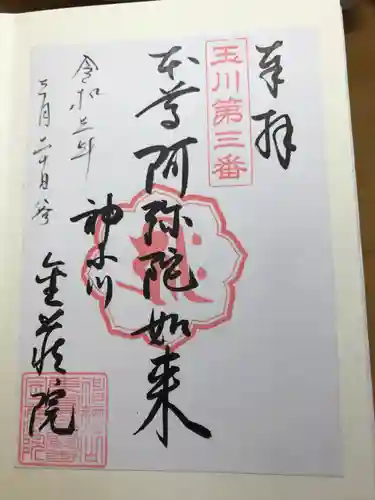 奉拝
玉川第三番
本尊阿弥陀如来
神小川
金蔵院
令和三年
三月二十日